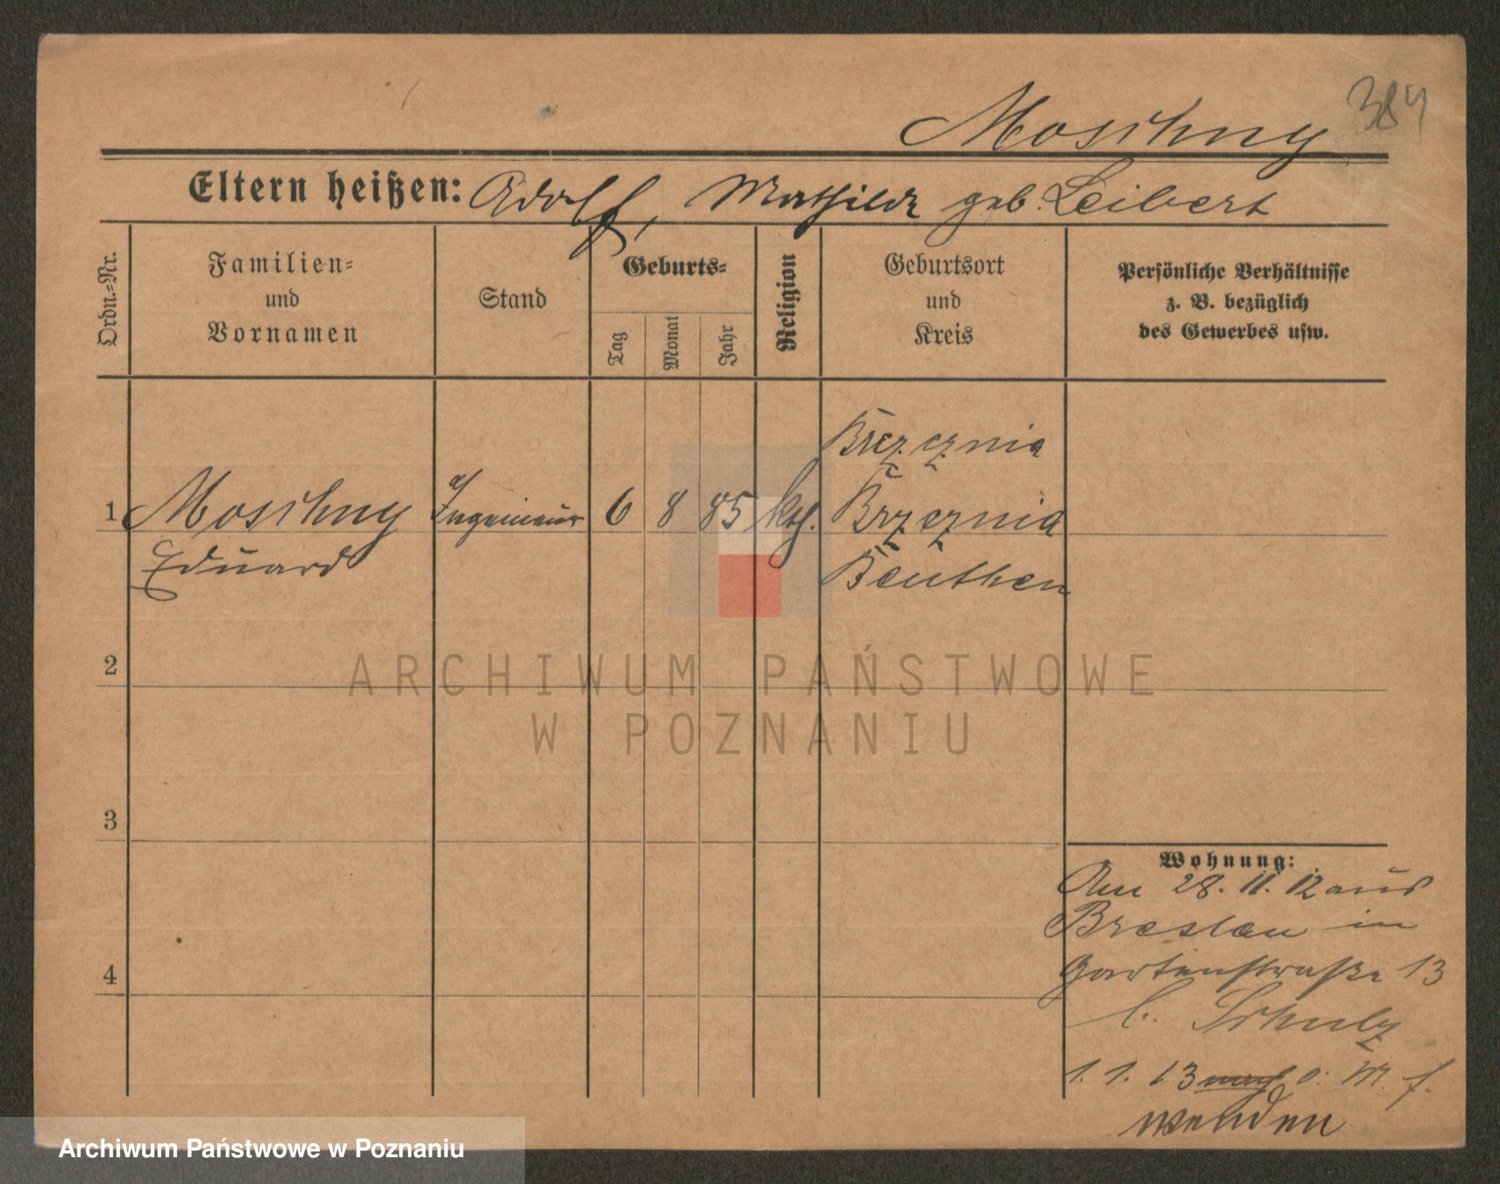 384
Moschny
Eltern heißen: Adolf, Mathilde geb. Leibert
Ordn.-Nr.
Familien-
und
Vornamen
Stand
Geburts-
Tag
Monat
Jahr
Religion
Geburtsort
und
Kreis
Persönliche Verhältnisse
z. B. bezüglich
des Gewerbes usw.
Brzeznia
1 Moschny Ingenieur 6 8 85 kth. Brzeznia
Eduard Beuthen
2
ARCHIWUM PAŃSTWOWE
W POZNANIU
3
Wohnung:
Am 28. 11. 12 aus
Breslau in
Gartenstraße 13
b. Schulz
4
1. 1. 13 nach o. M. f.
wenden
Archiwum Państwowe w Poznaniu